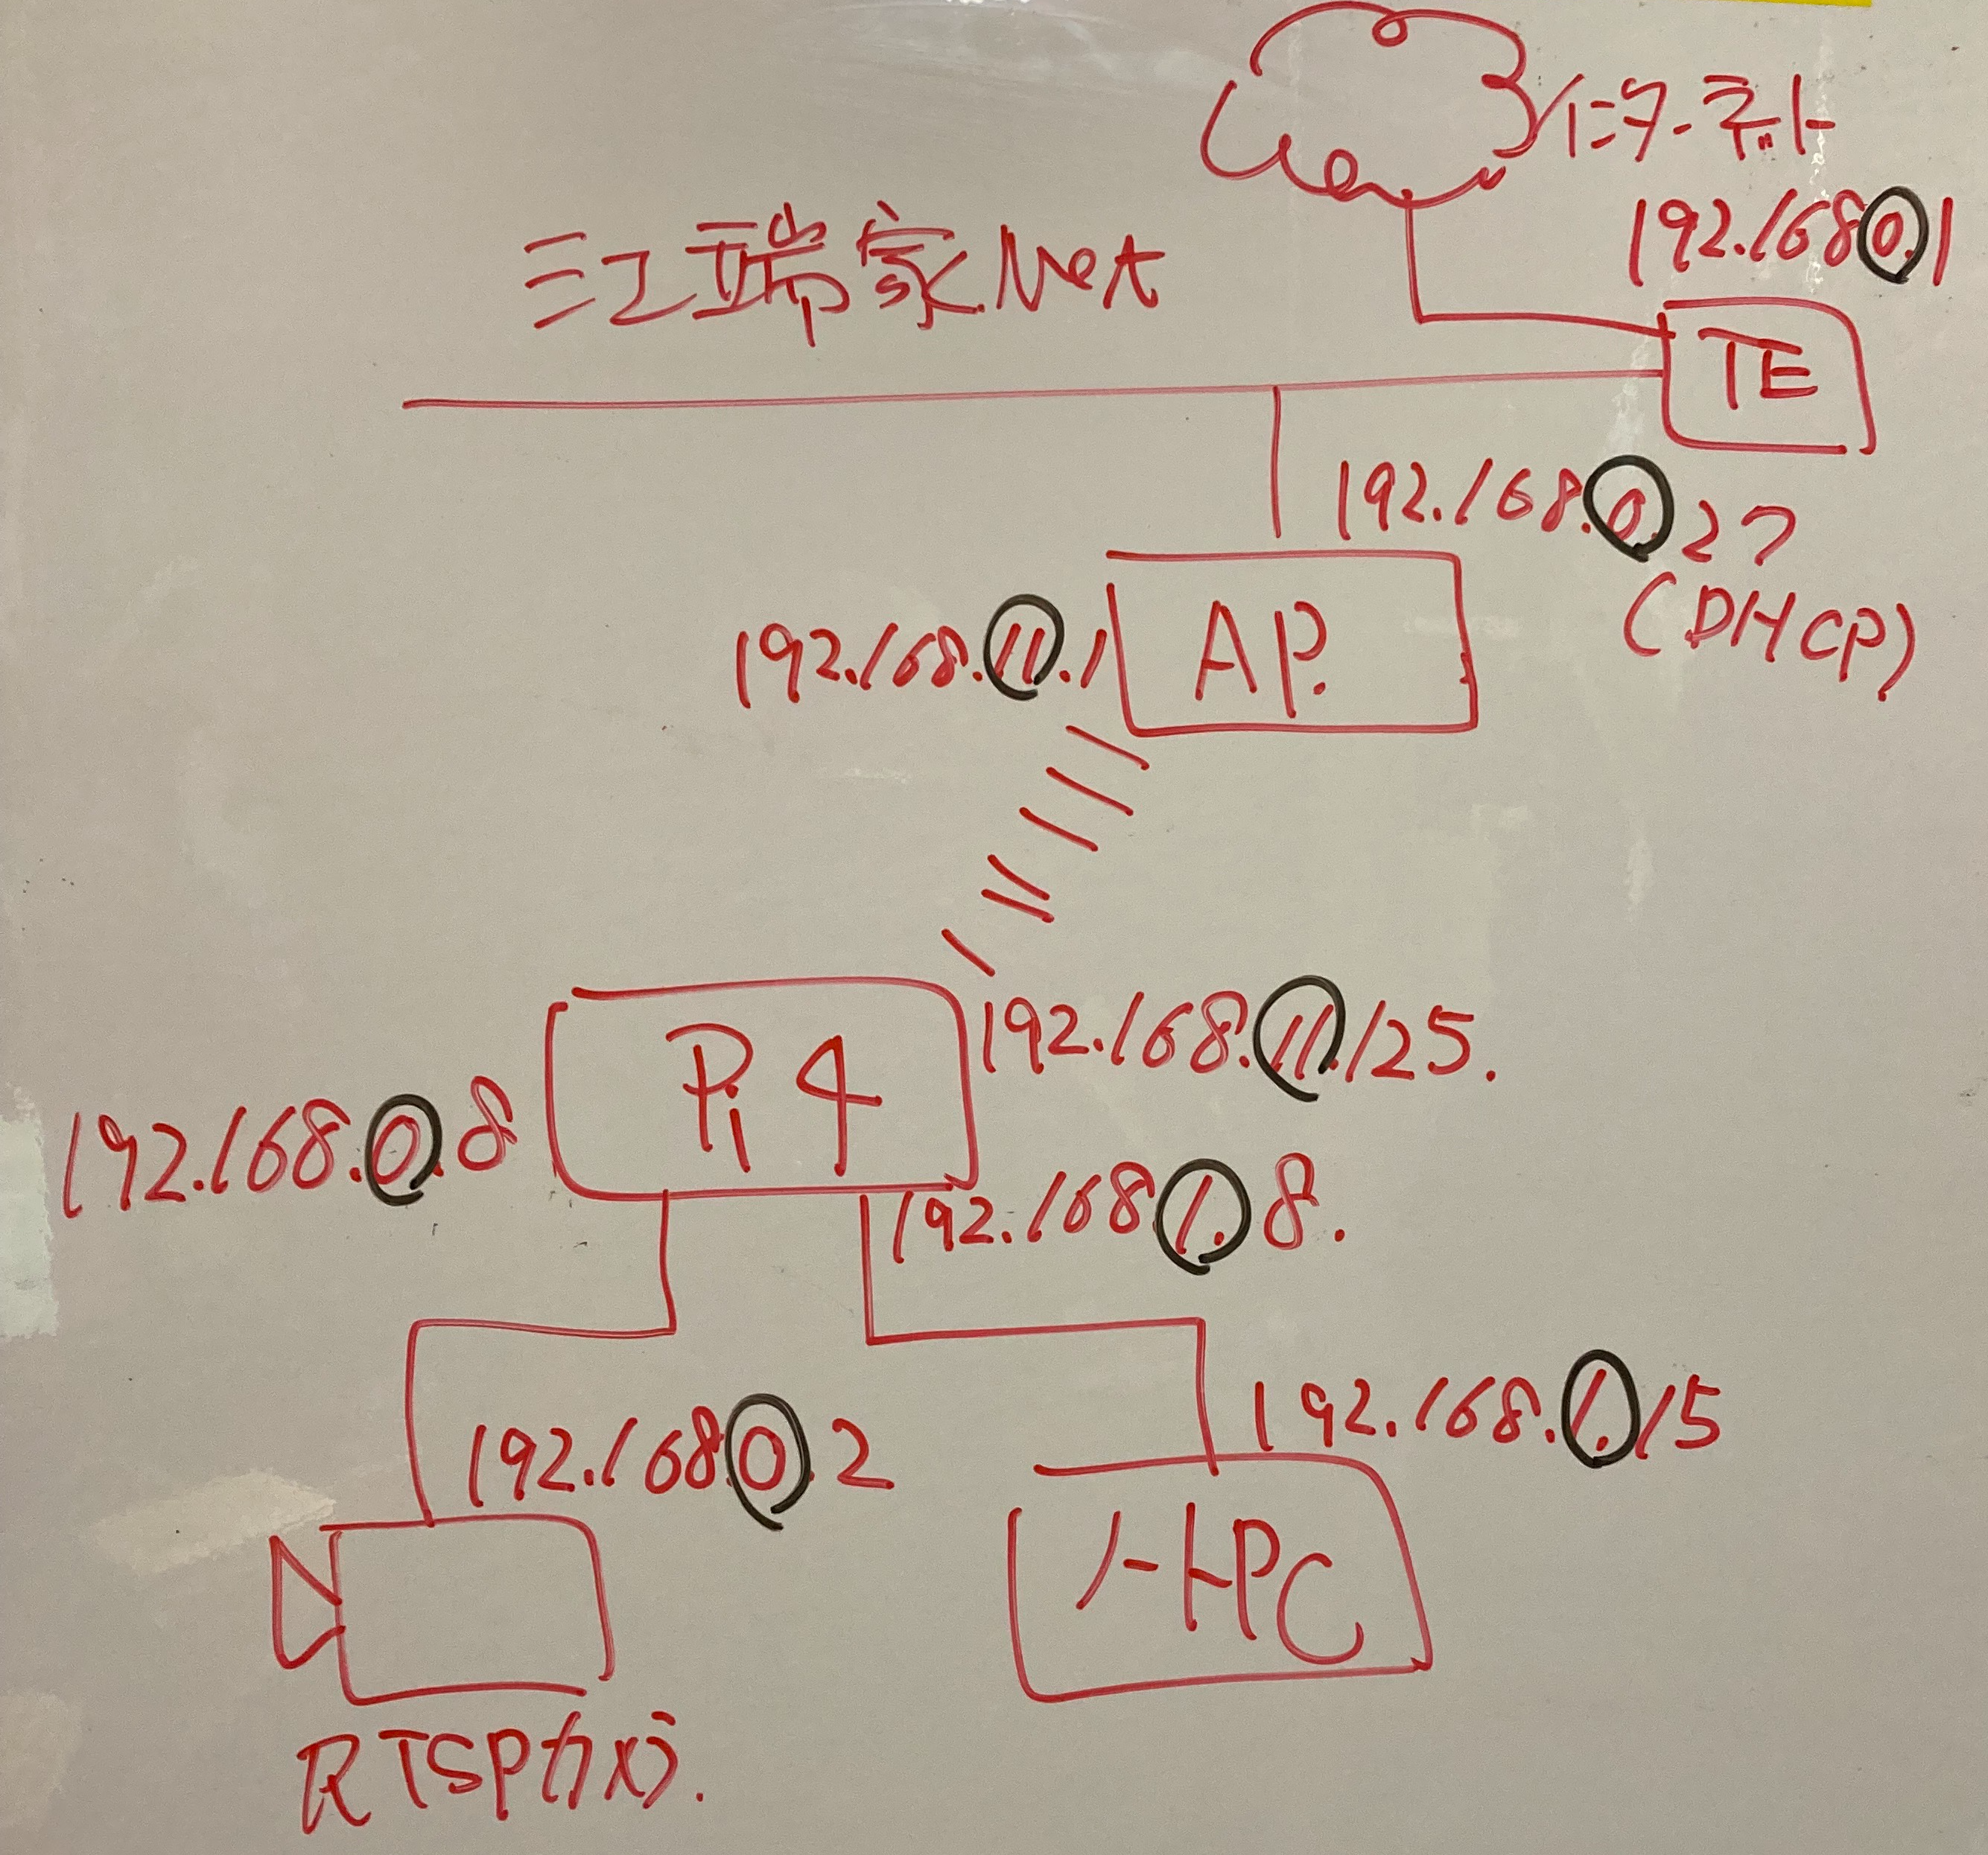 インターネット
192.168.0.1
江端家.Net
TE
192.168.0.27
(DHCP)
192.168.11.1
AP.
Pi 4
192.168.11.125.
192.168.0.8
192.168.1.8.
192.168.0.2
192.168.1.15
ノートPC
RTSPカメラ.